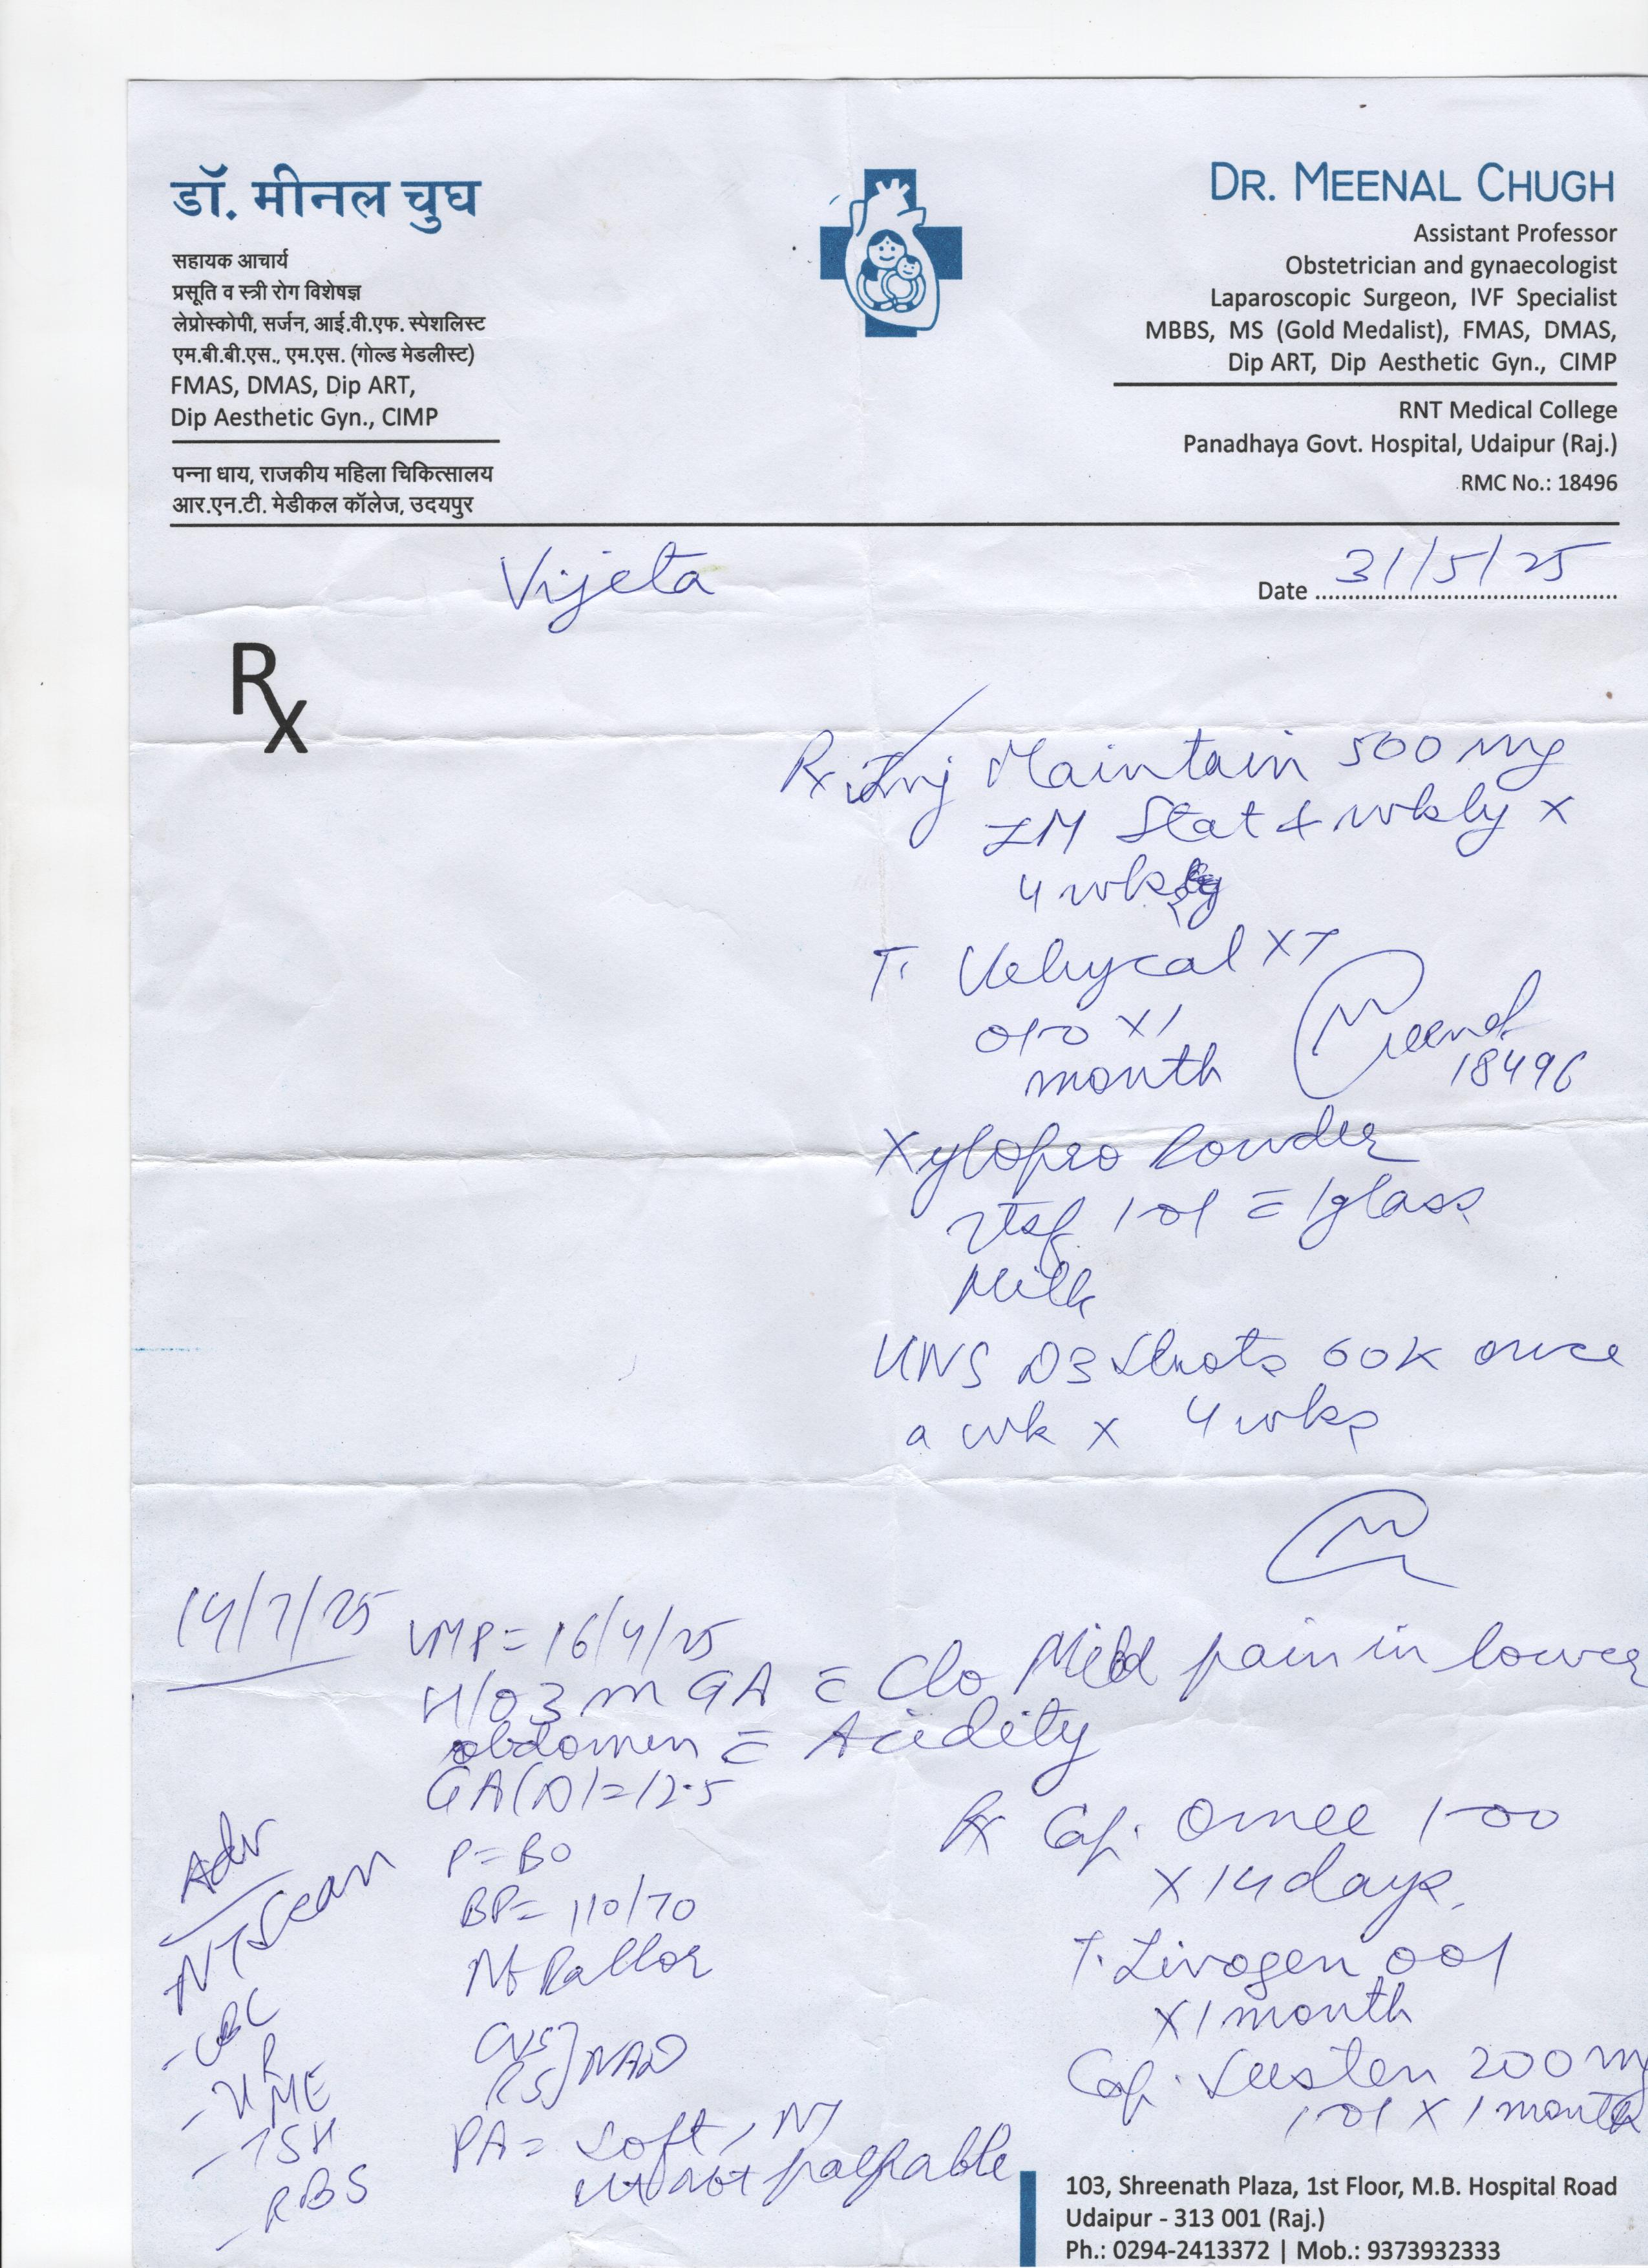 डॉ. मीनल चुघ
सहायक आचार्य
प्रसूति व स्त्री रोग विशेषज्ञ
लेप्रोस्कोपी, सर्जन, आई.वी.एफ. स्पेशलिस्ट
एम.बी.बी.एस., एम.एस. (गोल्ड मेडलीस्ट)
FMAS, DMAS, Dip ART,
Dip Aesthetic Gyn., CIMP
पन्ना धाय, राजकीय महिला चिकित्सालय
आर.एन.टी. मेडीकल कॉलेज, उदयपुर
DR. MEENAL CHUGH
Assistant Professor
Obstetrician and gynaecologist
Laparoscopic Surgeon, IVF Specialist
MBBS, MS (Gold Medalist), FMAS, DMAS,
Dip ART, Dip Aesthetic Gyn., CIMP
RNT Medical College
Panadhaya Govt. Hospital, Udaipur (Raj.)
RMC No.: 18496
Vijeta
Date 31/5/25
Rx
Rx Inj Maintain 500 mg
IM Stat & wkly x
4 wk
T. XT
010 x1
month
Meenal
18496
Xylopro Powder
2tsf 1-01 = 1glass
Milk
UNS D3 Shots 60K once
a wk x 4 wks
14/7/25
LMP = 16/4/25
H/O 3 m GA c C/o Mild pain in lower
abdomen c Acidity
GA(D) = 12.5
P = 80
BP = 110/70
No Pallor
CVS
RS] NAD
PA = Soft, NT
ut not palpable
Adv
NT Scan
- CBC
- RME
- TSH
- RBS
Rx Cap. Omee 1-00
x 14 days
T. Livogen 001
x 1 month
Cap. Susten 200 mg
1-01 x 1 month
103, Shreenath Plaza, 1st Floor, M.B. Hospital Road
Udaipur - 313 001 (Raj.)
Ph.: 0294-2413372 | Mob.: 9373932333